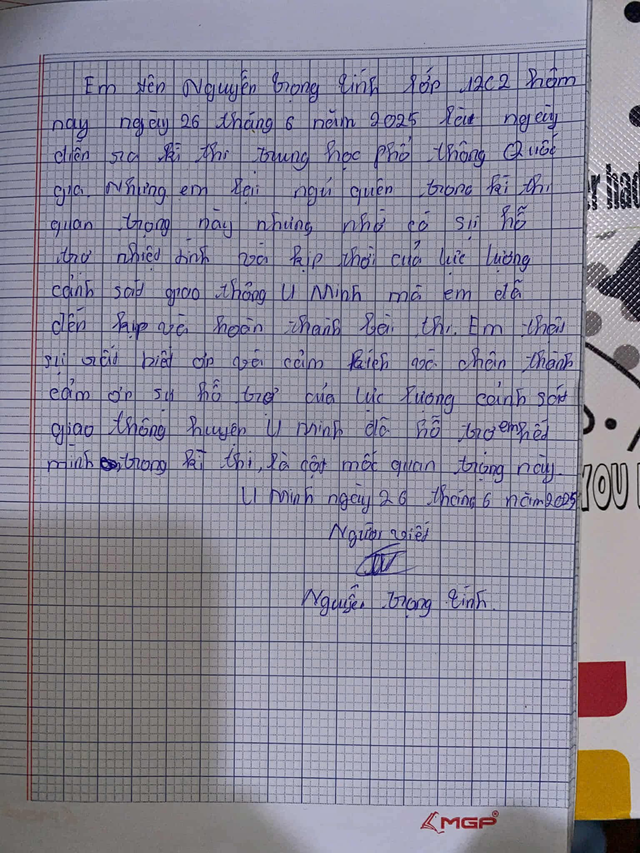 Em tên Nguyễn trọng tính lớp 12C2 hôm
nay ngày 26 tháng 6 năm 2025 là ngày
diễn ra kì thi trung học phổ thông Quốc
gia. Nhưng em lại ngủ quên trong kì thi
quan trọng này nhưng nhờ có sự hỗ
trợ nhiệt tình và kịp thời của lực lượng
cảnh sát giao thông U Minh mà em đã
đến kịp và hoàn thành bài thi. Em thật
sự rất biết ơn và cảm kích và chân thành
cảm ơn sự hỗ trợ của lực lượng cảnh sát
giao thông huyện U Minh đã hỗ trợ em hết
mình trong kì thi, là cột mốc quan trọng này.
U Minh ngày 26 tháng 6 năm 2025
Người viết
Nguyễn trọng tính.
MGP®
er had
S.
YOU